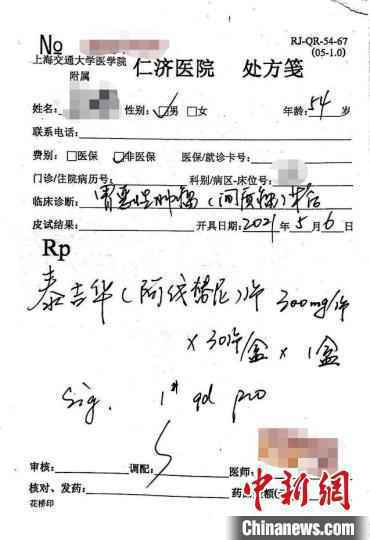 No
RJ-QR-54-67
(05-1.0)
上海交通大学医学院
附属
仁济医院 处方笺
姓名: 性别: ☑男 □女 年龄: 54 岁
联系电话:
费别: □医保 ☑非医保 医保/就诊卡号:
门诊/住院病历号: 科别/病区-床位号:
临床诊断: 胃恶性肿瘤(间质瘤)术后
皮试结果: 开具日期: 2021年5月6日
Rp
泰吉华(阿伐替尼)片 300mg/片
x 30片/盒 x 1盒
Sig. 1# qd po
审核: 调配: 医师:
核对、发药: 药品金额
花桥印
中新网
Chinanews.com